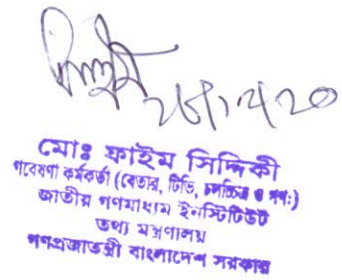 মোঃ ফাইম সিদ্দিকী
গবেষণা কর্মকর্তা (বেতার, টিভি, চলচ্চিত্র ও গণ:)
জাতীয় গণমাধ্যম ইনস্টিটিউট
তথ্য মন্ত্রণালয়
গণপ্রজাতন্ত্রী বাংলাদেশ সরকার